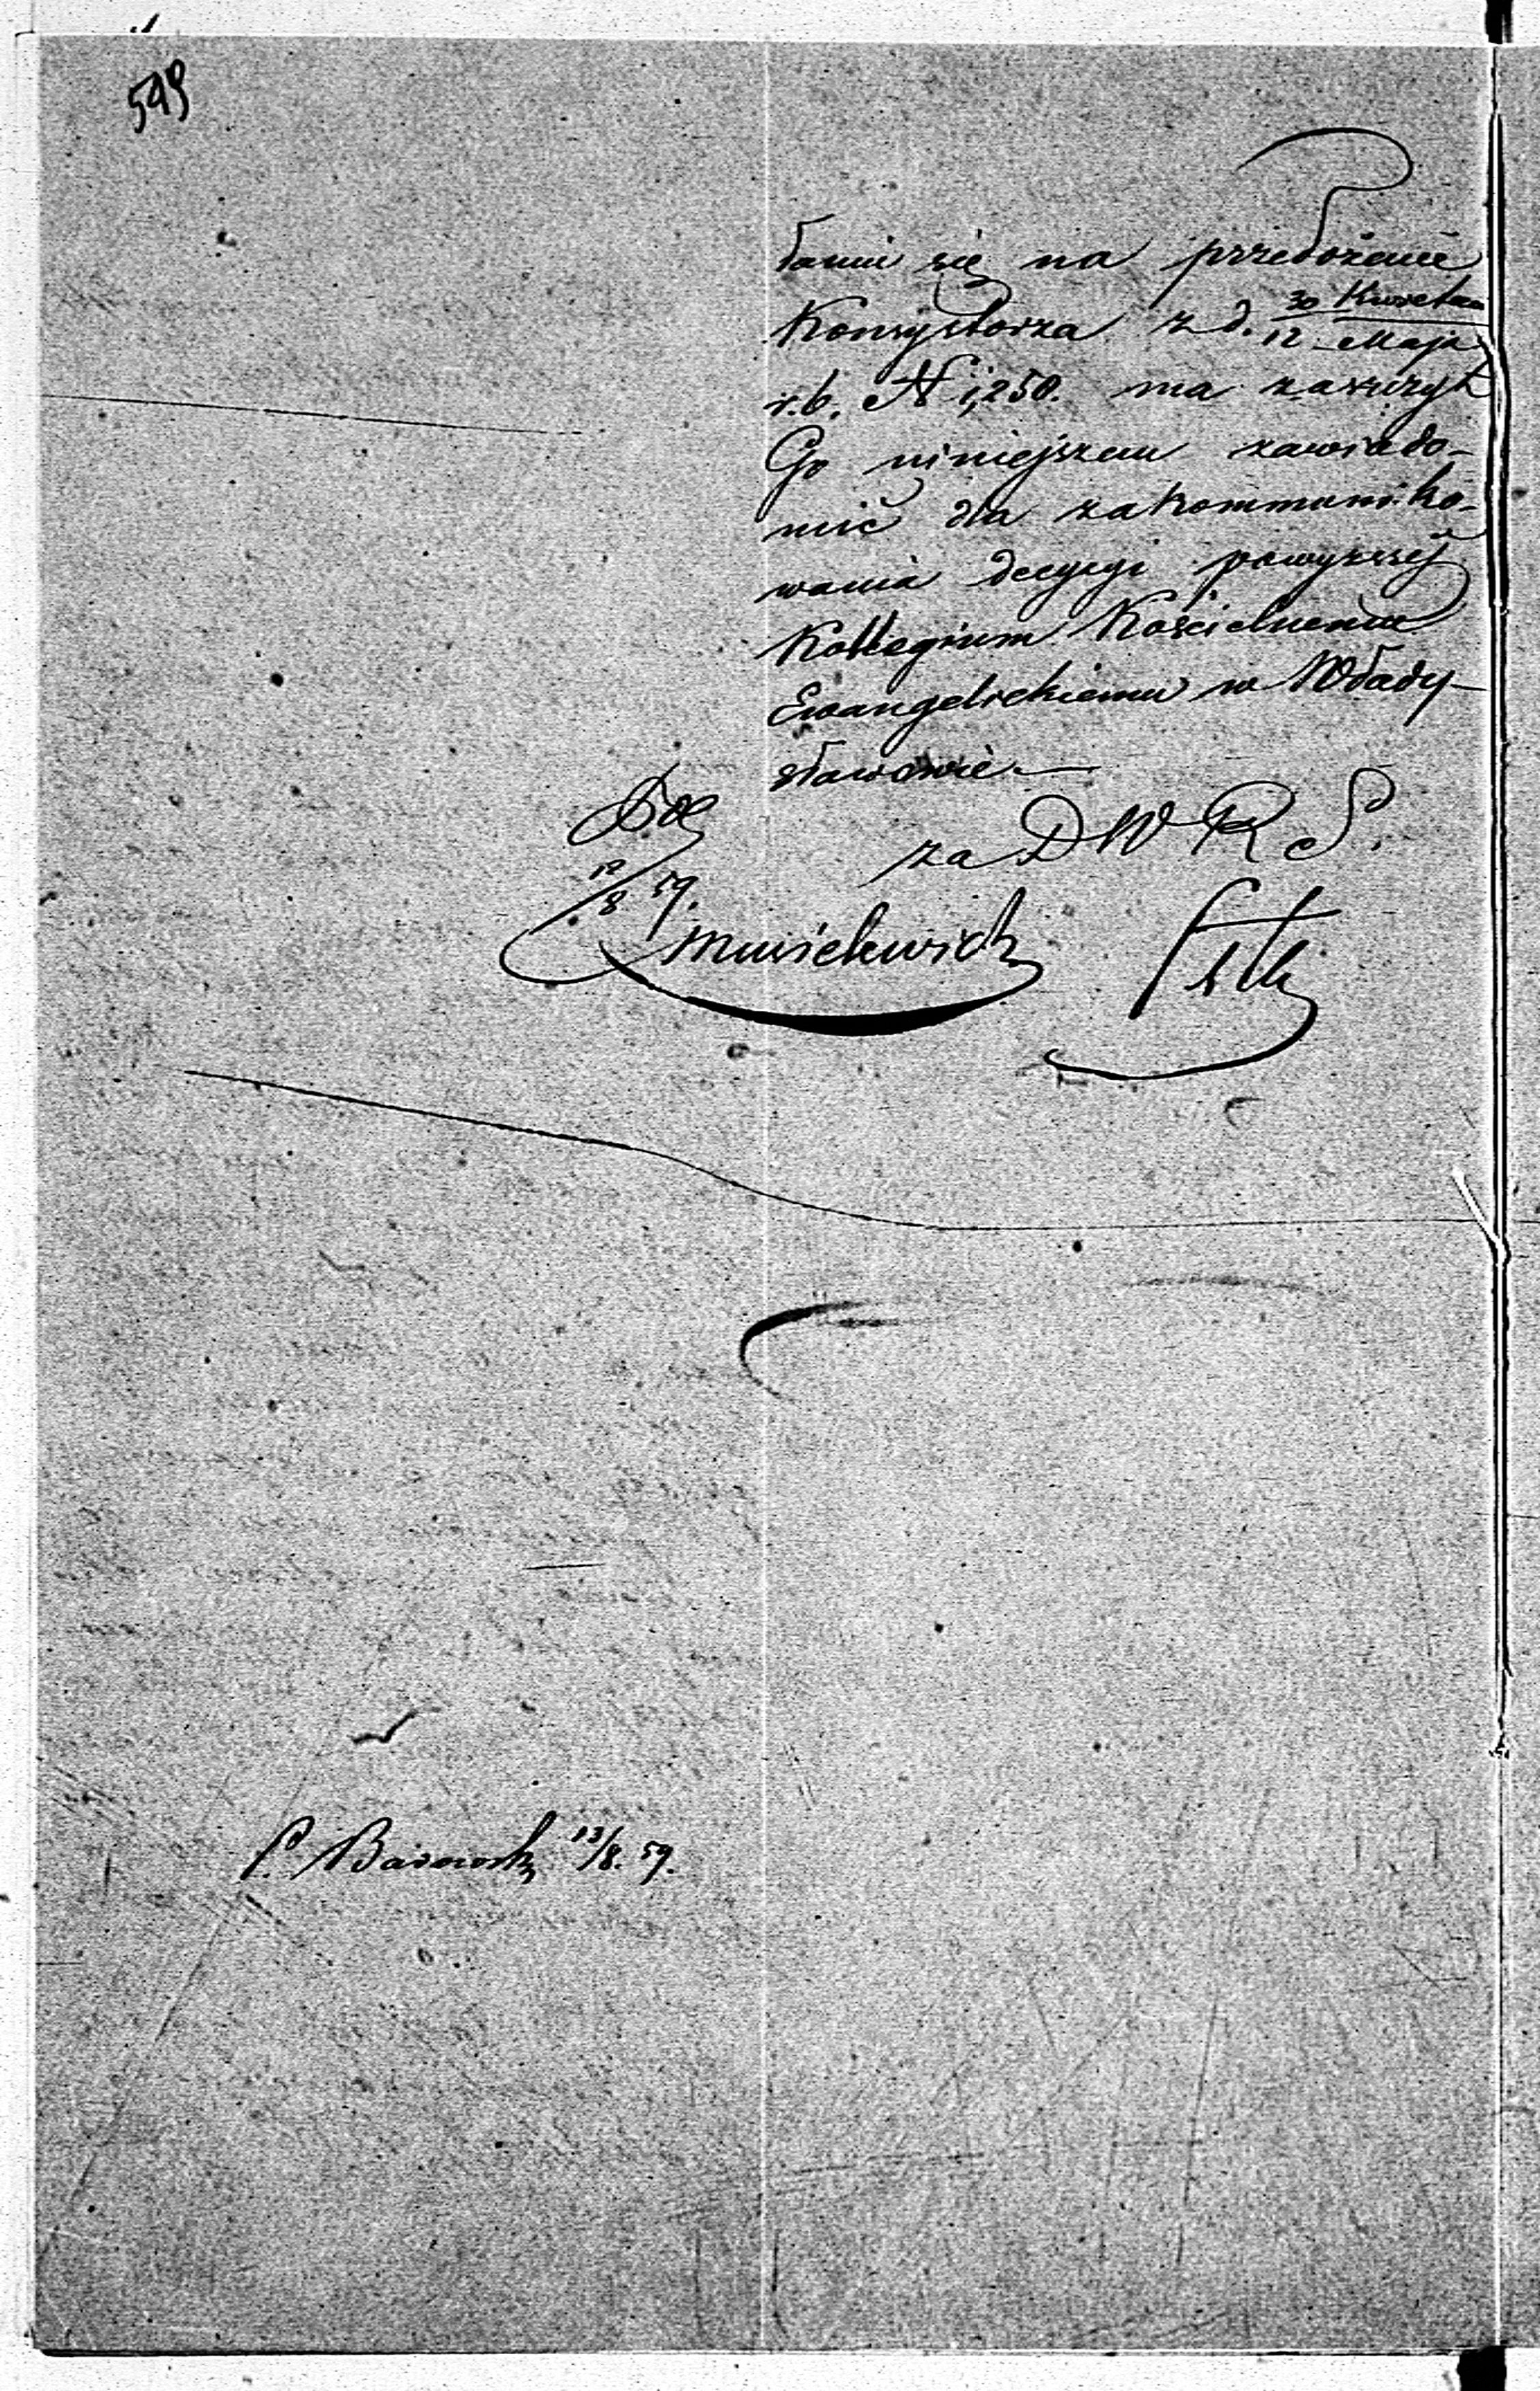 549
łaniu się na przedłożenie
Konsystorza z d. 30 Kwietnia
12 Maja
r.b. N 1,250. ma zaszczyt
Go niniejszem zawiado-
mić dla zakommuniko-
wania decyzyi powyższej
Kollegium Kościelnemu
Ewangelickiemu w Włady-
sławowie.—
za D W R S.
12/8 59.
13/8. 59.